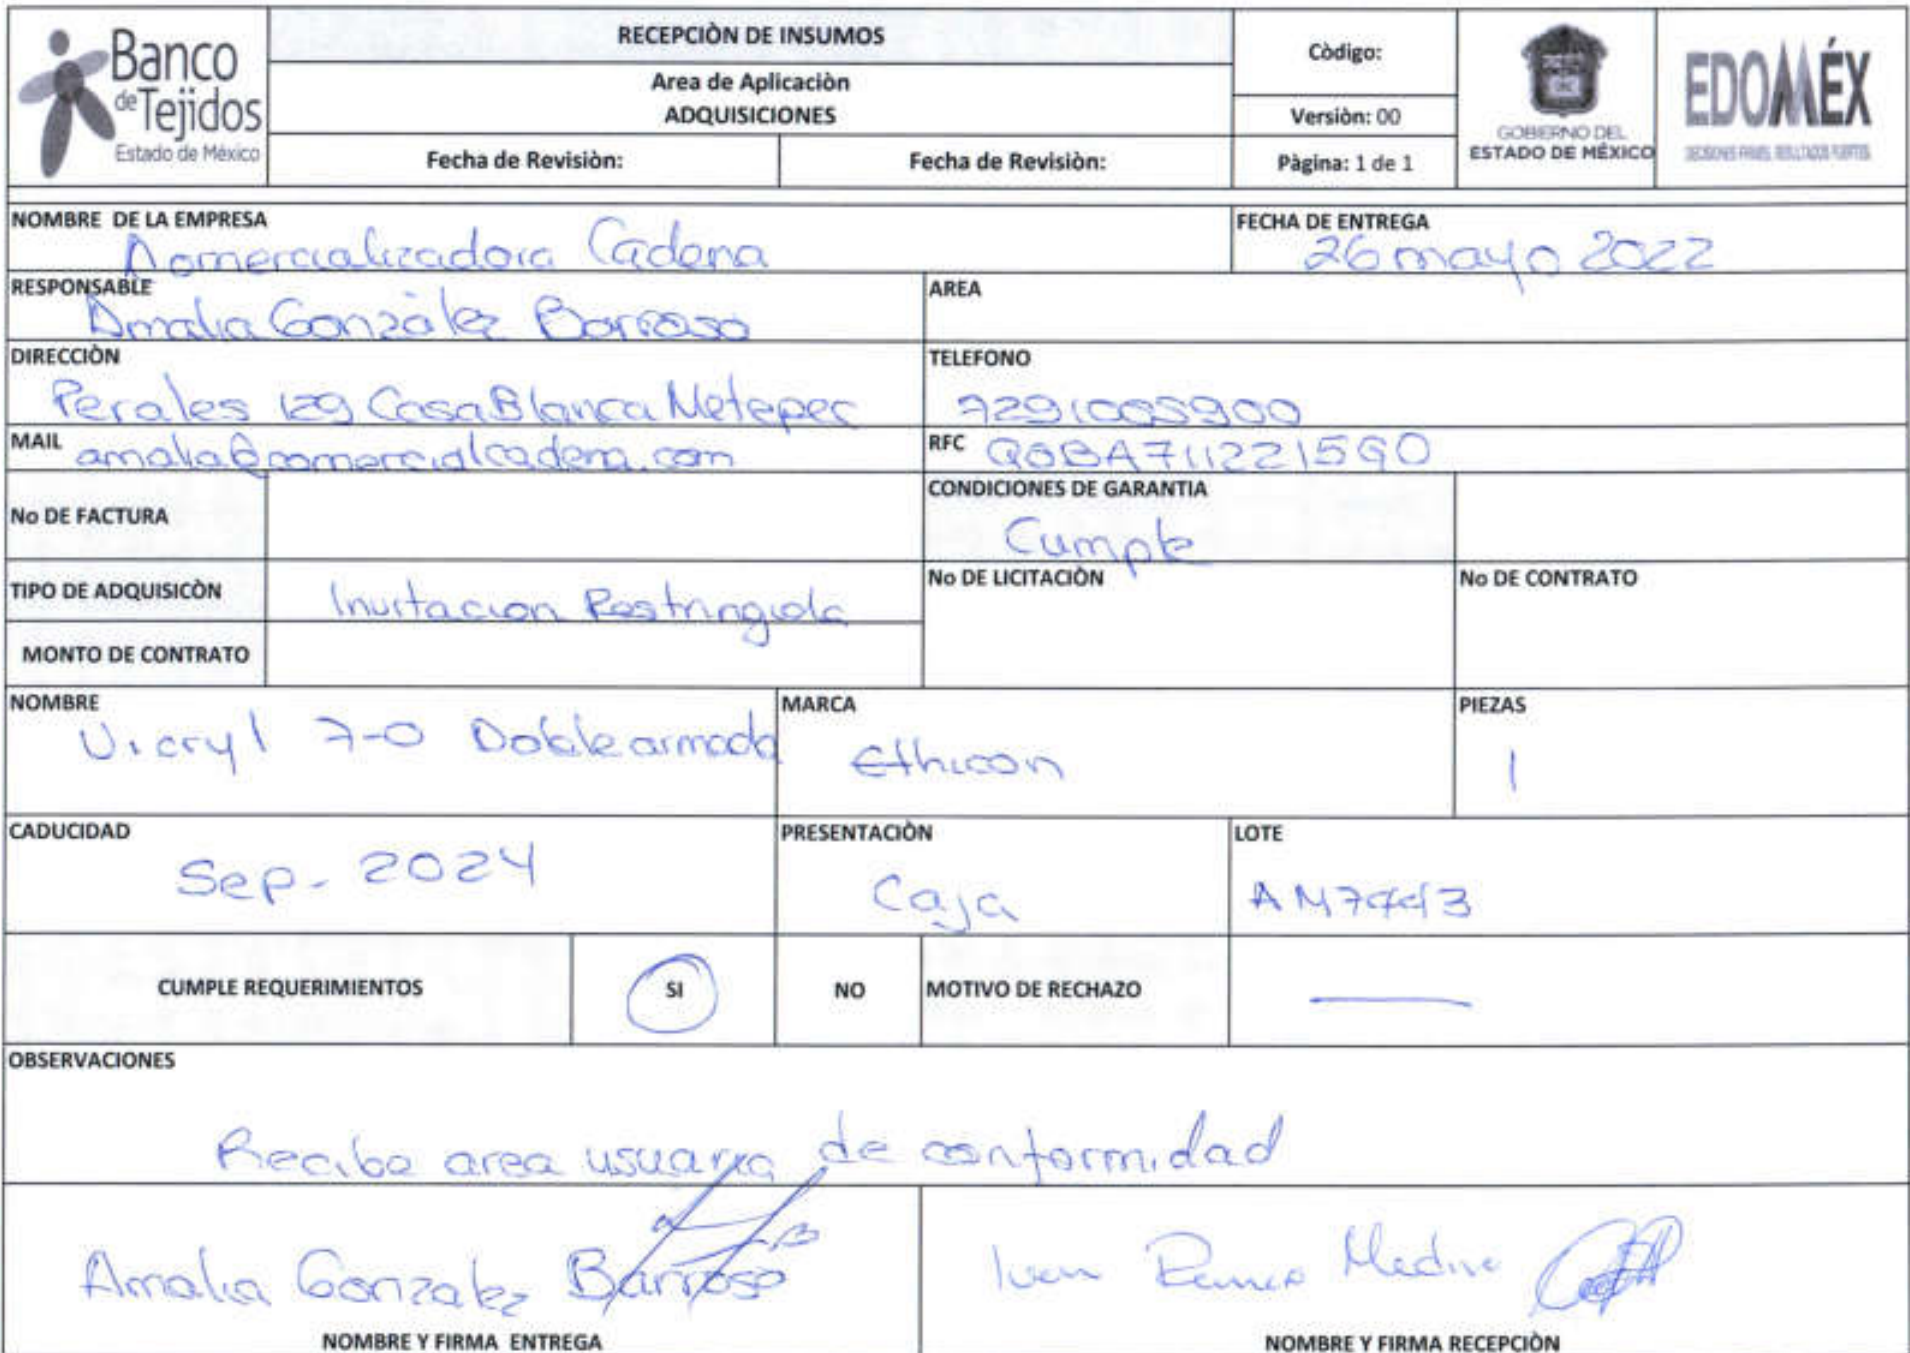 Banco
de Tejidos
Estado de México
RECEPCIÒN DE INSUMOS
Area de Aplicaciòn
ADQUISICIONES
Fecha de Revisiòn:
Fecha de Revisiòn:
Còdigo:
Versiòn: 00
Pàgina: 1 de 1
GOBIERNO DEL
ESTADO DE MÉXICO
EDOMÉX
DECISIONES FIRMES, RESULTADOS FUERTES.
NOMBRE DE LA EMPRESA
Comercializadora Cadena
FECHA DE ENTREGA
26 mayo 2022
RESPONSABLE
Amalia Gonzàlez Barroso
AREA
DIRECCIÒN
Perales 129 Casa Blanca Metepec
TELEFONO
7291005900
MAIL amalia@comercialcadena.com
RFC GOBA7112215G0
No DE FACTURA
CONDICIONES DE GARANTIA
Cumple
TIPO DE ADQUISICÒN
Invitacion Restringida
No DE LICITACIÒN
No DE CONTRATO
MONTO DE CONTRATO
NOMBRE
Vicryl 7-0 Doble armada
MARCA
Ethicon
PIEZAS
1
CADUCIDAD
Sep. 2024
PRESENTACIÒN
Caja
LOTE
CUMPLE REQUERIMIENTOS
SI
NO
MOTIVO DE RECHAZO
OBSERVACIONES
Recibe area usuaria de conformidad
Amalia Gonzalez Barroso
NOMBRE Y FIRMA ENTREGA
Ivan Medina
NOMBRE Y FIRMA RECEPCIÒN